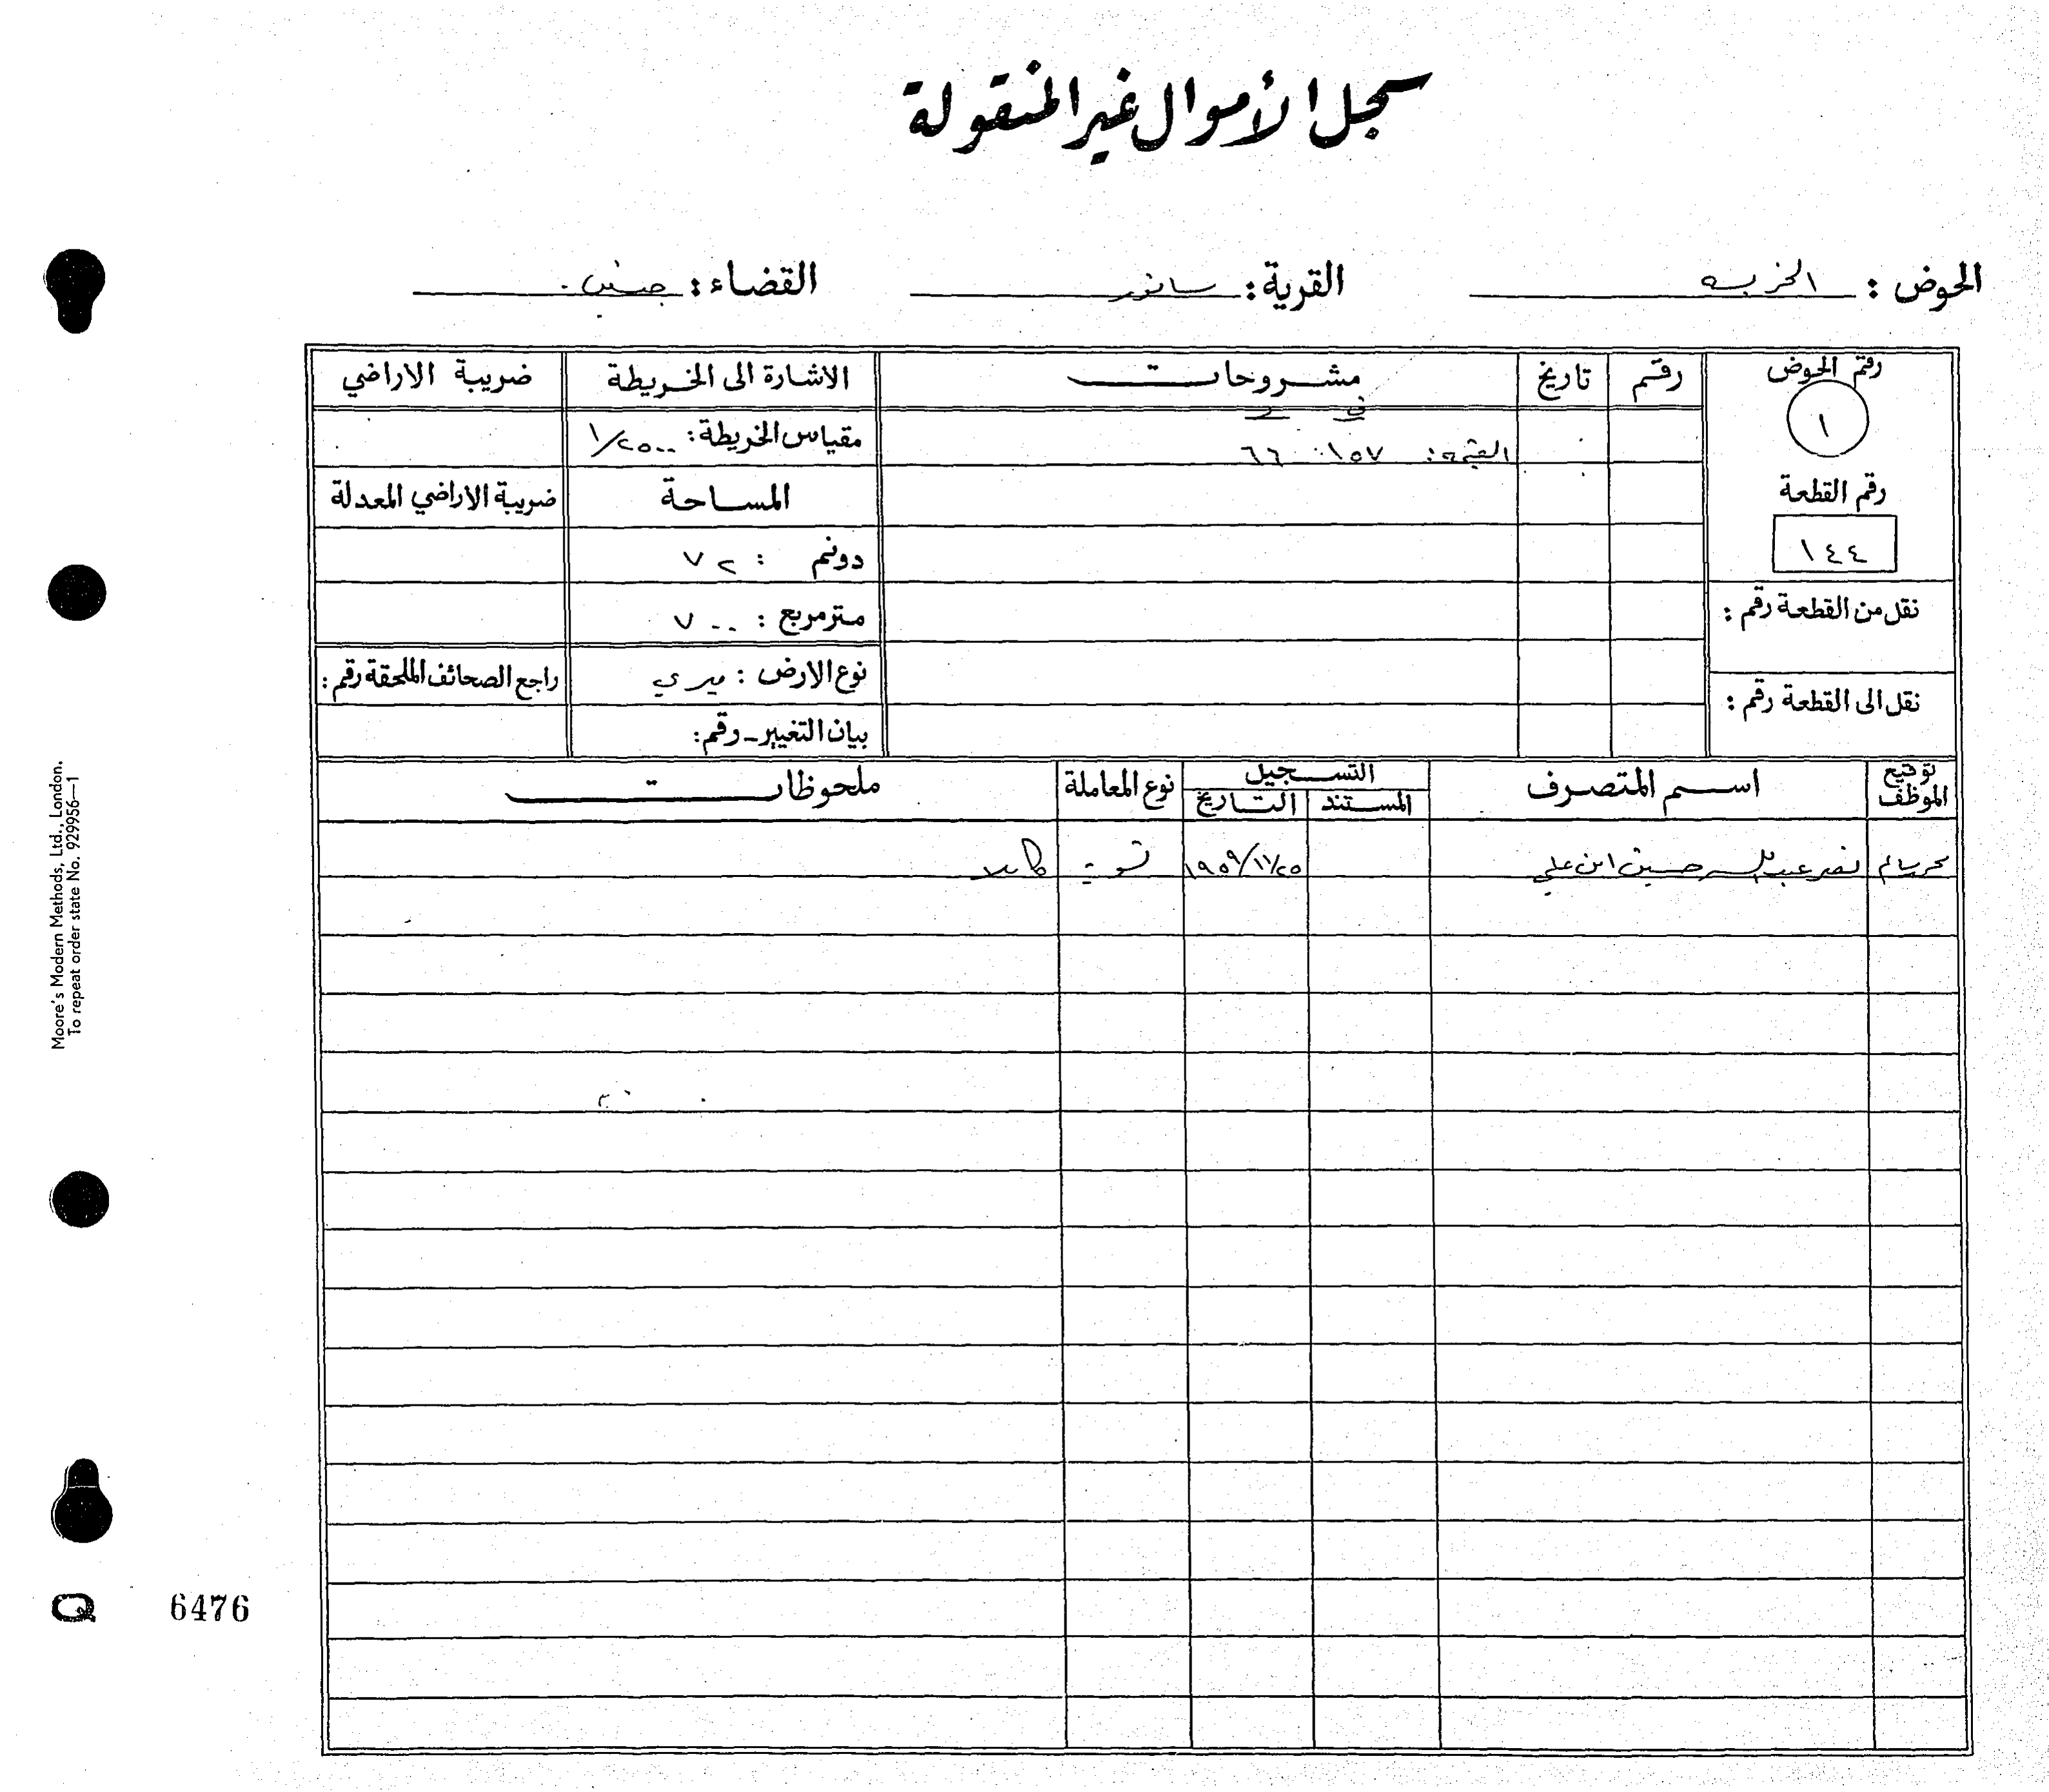 سجل الأموال غير المنقولة
الحوض : الخربه القرية: سانور القضاء: جنين
رقم الحوض رقم تاريخ مشروحات الاشارة الى الخريطة ضريبة الاراضي
١
القيمة: ١٥٧ ٦٦ مقياس الخريطة: ١/٢٥٠٠
رقم القطعة المساحة ضريبة الاراضي المعدلة
١٤٤ دونم : ٧٢
نقل من القطعة رقم : متر مربع : ٧٠٠
نوع الارض : ميري راجع الصحائف الملحقة رقم :
نقل الى القطعة رقم : بيان التغيير - رقم:
توقيع الموظف اسم المتصرف التسجيل نوع المعاملة ملحوظات
المستند التاريخ
حسين ابن علي ١٩٥٩/١١/٢٥ تسوية كاملا
Moore's Modern Methods, Ltd., London.
To repeat order state No. 929956—1
Q 6476